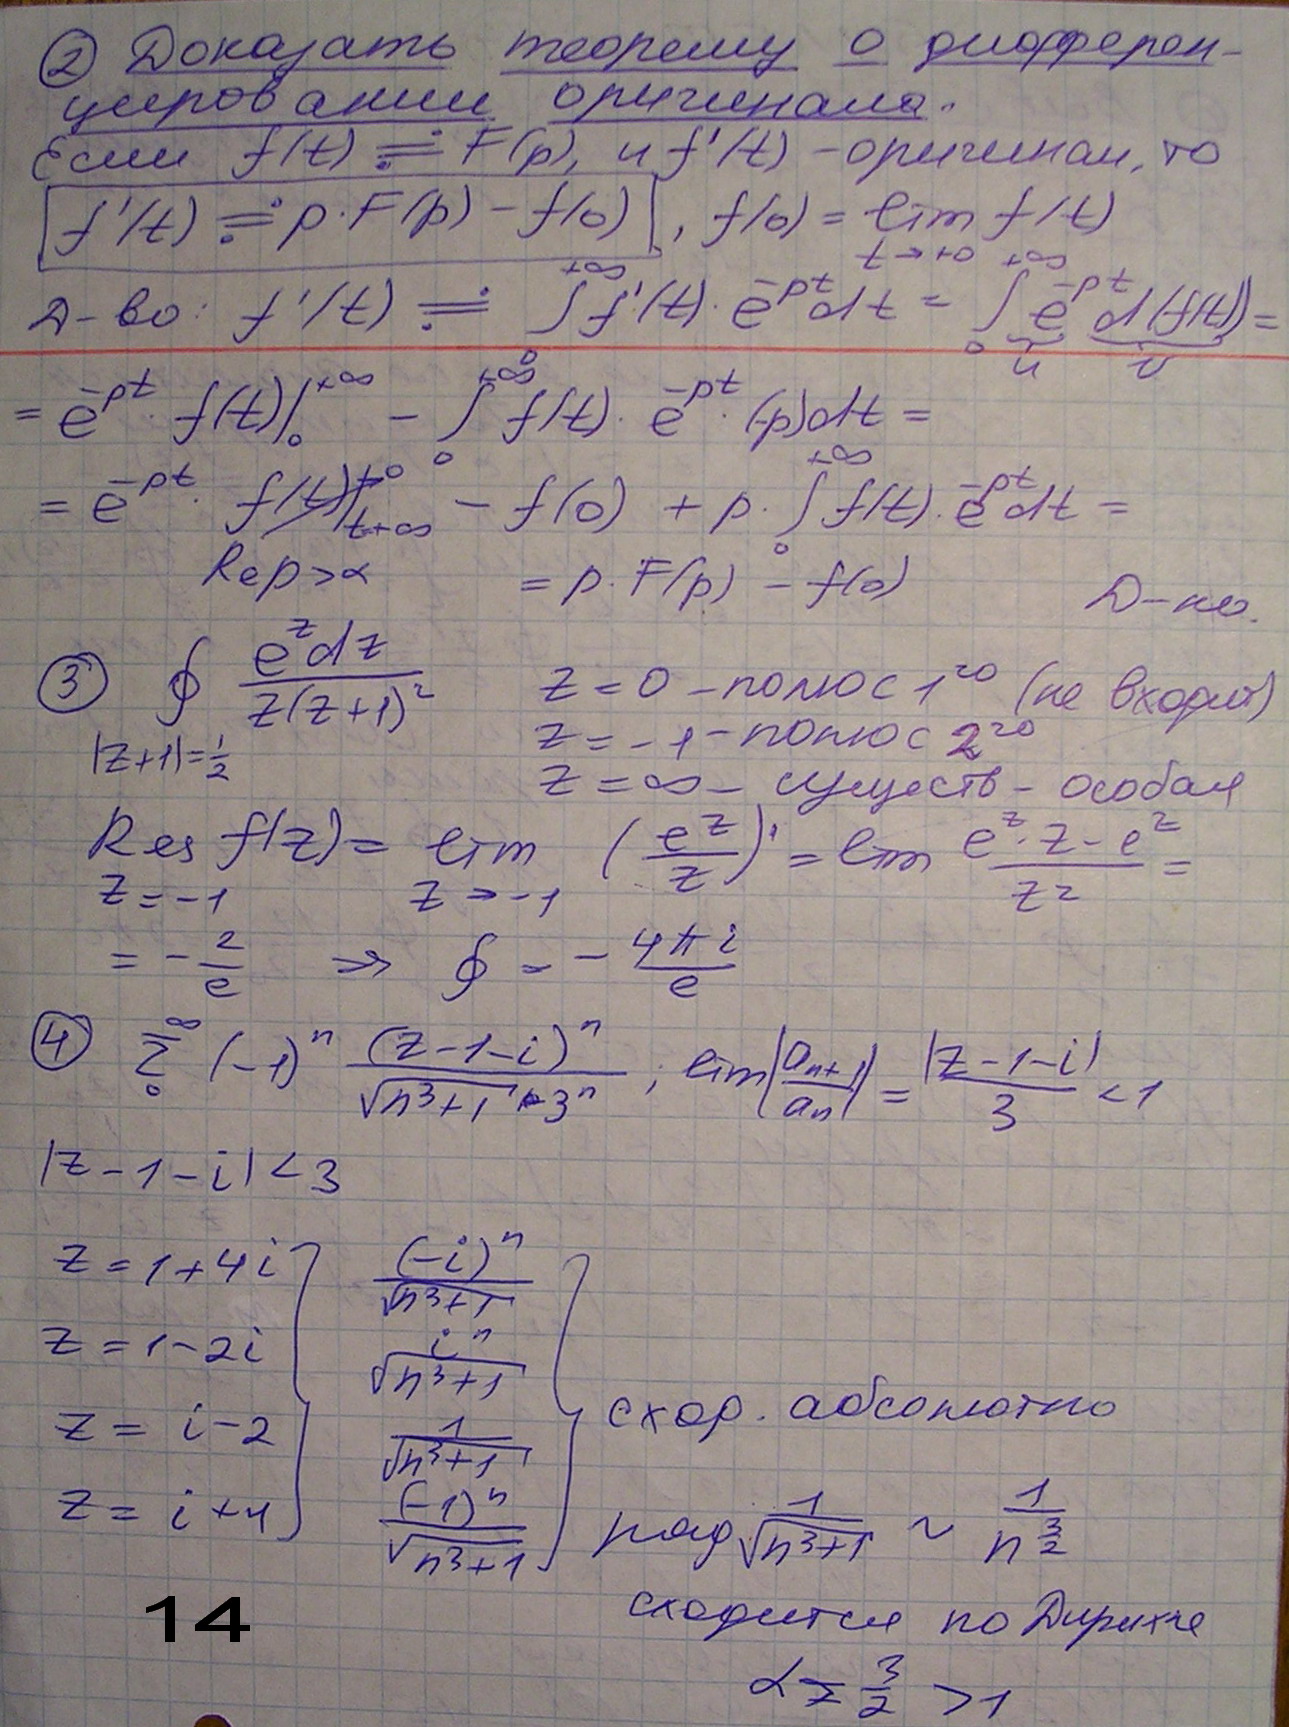 ② Доказать теорему о дифферен-
цировании оригинала.
Если f(t) ≓ F(p), и f'(t) - оригинал, то
f'(t) ≓ p·F(p) - f(0), f(0) = lim f(t)
t→+0
Д-во: f'(t) ≓ ∫₀^{+∞} f'(t)·e^{-pt}dt = ∫₀^{+∞} e^{-pt} d(f(t)) =
u v
= e^{-pt}·f(t)|₀^{+∞} - ∫₀^{+∞} f(t)·e^{-pt}·(-p)dt =
= e^{-pt}·f(t)|_{t→∞}^{→0} - f(0) + p·∫₀^{+∞} f(t)·e^{-pt}dt =
Re p > α = p·F(p) - f(0) Д-но.
③ ∮ e^z dz / z(z+1)² z = 0 - полюс 1го (не входит)
|z+1|=1/2 z = -1 - полюс 2го
z = ∞ - существ - особая
Res f(z) = lim (e^z/z)' = lim (e^z·z - e^z)/z² =
z=-1 z→-1
= -2/e ⇒ ∮ = -4πi/e
④ Σ₀^∞ (-1)^n (z-1-i)^n / √(n³+1)·3^n ; lim|a_{n+1}/a_n| = |z-1-i|/3 < 1
|z-1-i| < 3
z = 1+4i (-i)^n/√(n³+1)
z = 1-2i i^n/√(n³+1)
z = i-2 1/√(n³+1) сход. абсолютно
z = i+4 (-1)^n/√(n³+1) ряд 1/√(n³+1) ~ 1/n^{3/2}
сходится по Дирихле
α = 3/2 > 1
14